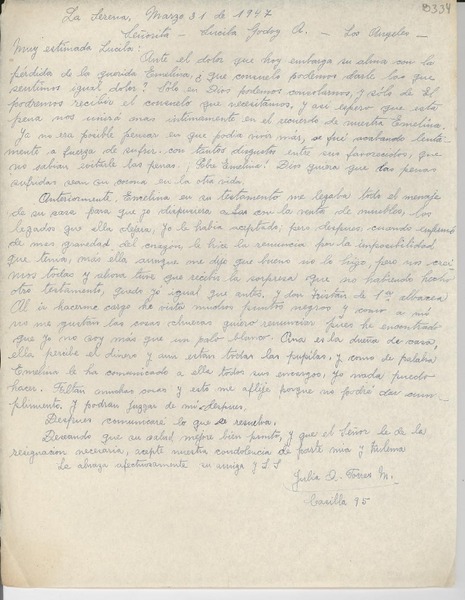 8334
La Serena, Marzo 31 de 1947
Señorita - Lucila Godoy A. - Los Angeles -
Muy estimada Lucila:
Ante el dolor que hoy embarga su alma con la
pérdida de la querida Emelina, ¿que consuelo podemos darle las que
sentimos igual dolor? Sólo en Dios podemos consolarnos, y sólo de El
podremos recibir el consuelo que necesitamos, y así espero que esta
pena nos unirá mas intimamente en el recuerdo de nuestra Emelina.
Ya no era posible pensar en que podia vivir más, se fué acabando lenta-
mente a fuerza de sufrir con tantos disgustos entre sus favorecidos, que
no sabian evitarle las penas. ¡Pobre Emelina! Dios quiera que las penas
sufridas sean su corona en la otra vida.
Anteriormente Emelina en su testamento me legaba todo el menaje
de su casa para que yo dispusiera con la venta de muebles, los
legados que ella dejara. Yo le habia aceptado, pero despues, cuando enfermó
de mas gravedad del corazon le hice la renuncia por la imposibilidad
que tenia, mas ella aunque me dijo que bueno no lo hizo, pero nos creí-
mos todas y ahora tuve que recibir la sorpresa que no habiendo hecho
otro testamento, quedo yo igual que antes, y don Tristán de 1er albacea
Al ir hacerme cargo he visto muchos puntos negros y como a mí
no me gustan las cosas chuecas quiero renunciar pues he encontrado
que yo no soy más que un palo blanco. Ana es la dueña de casa,
ella percibe el dinero y aún están todas las pupilas, y como de palabra
Emelina le ha comunicado a ella todos sus encargos, yo nada puedo
hacer. Faltan muchas cosas y esto me aflije porque no podré dar cum-
plimento. Y podran juzgar de mí despues.
Despues comunicaré lo que se resuelva.
Deseando que su salud mejore bien pronto, y que el Señor le de la
resignacion necesaria, acepte nuestra condolencia de parte mia y
La abraza afectuosamente su amiga y S S
Julia A. Torres M.
Casilla 95